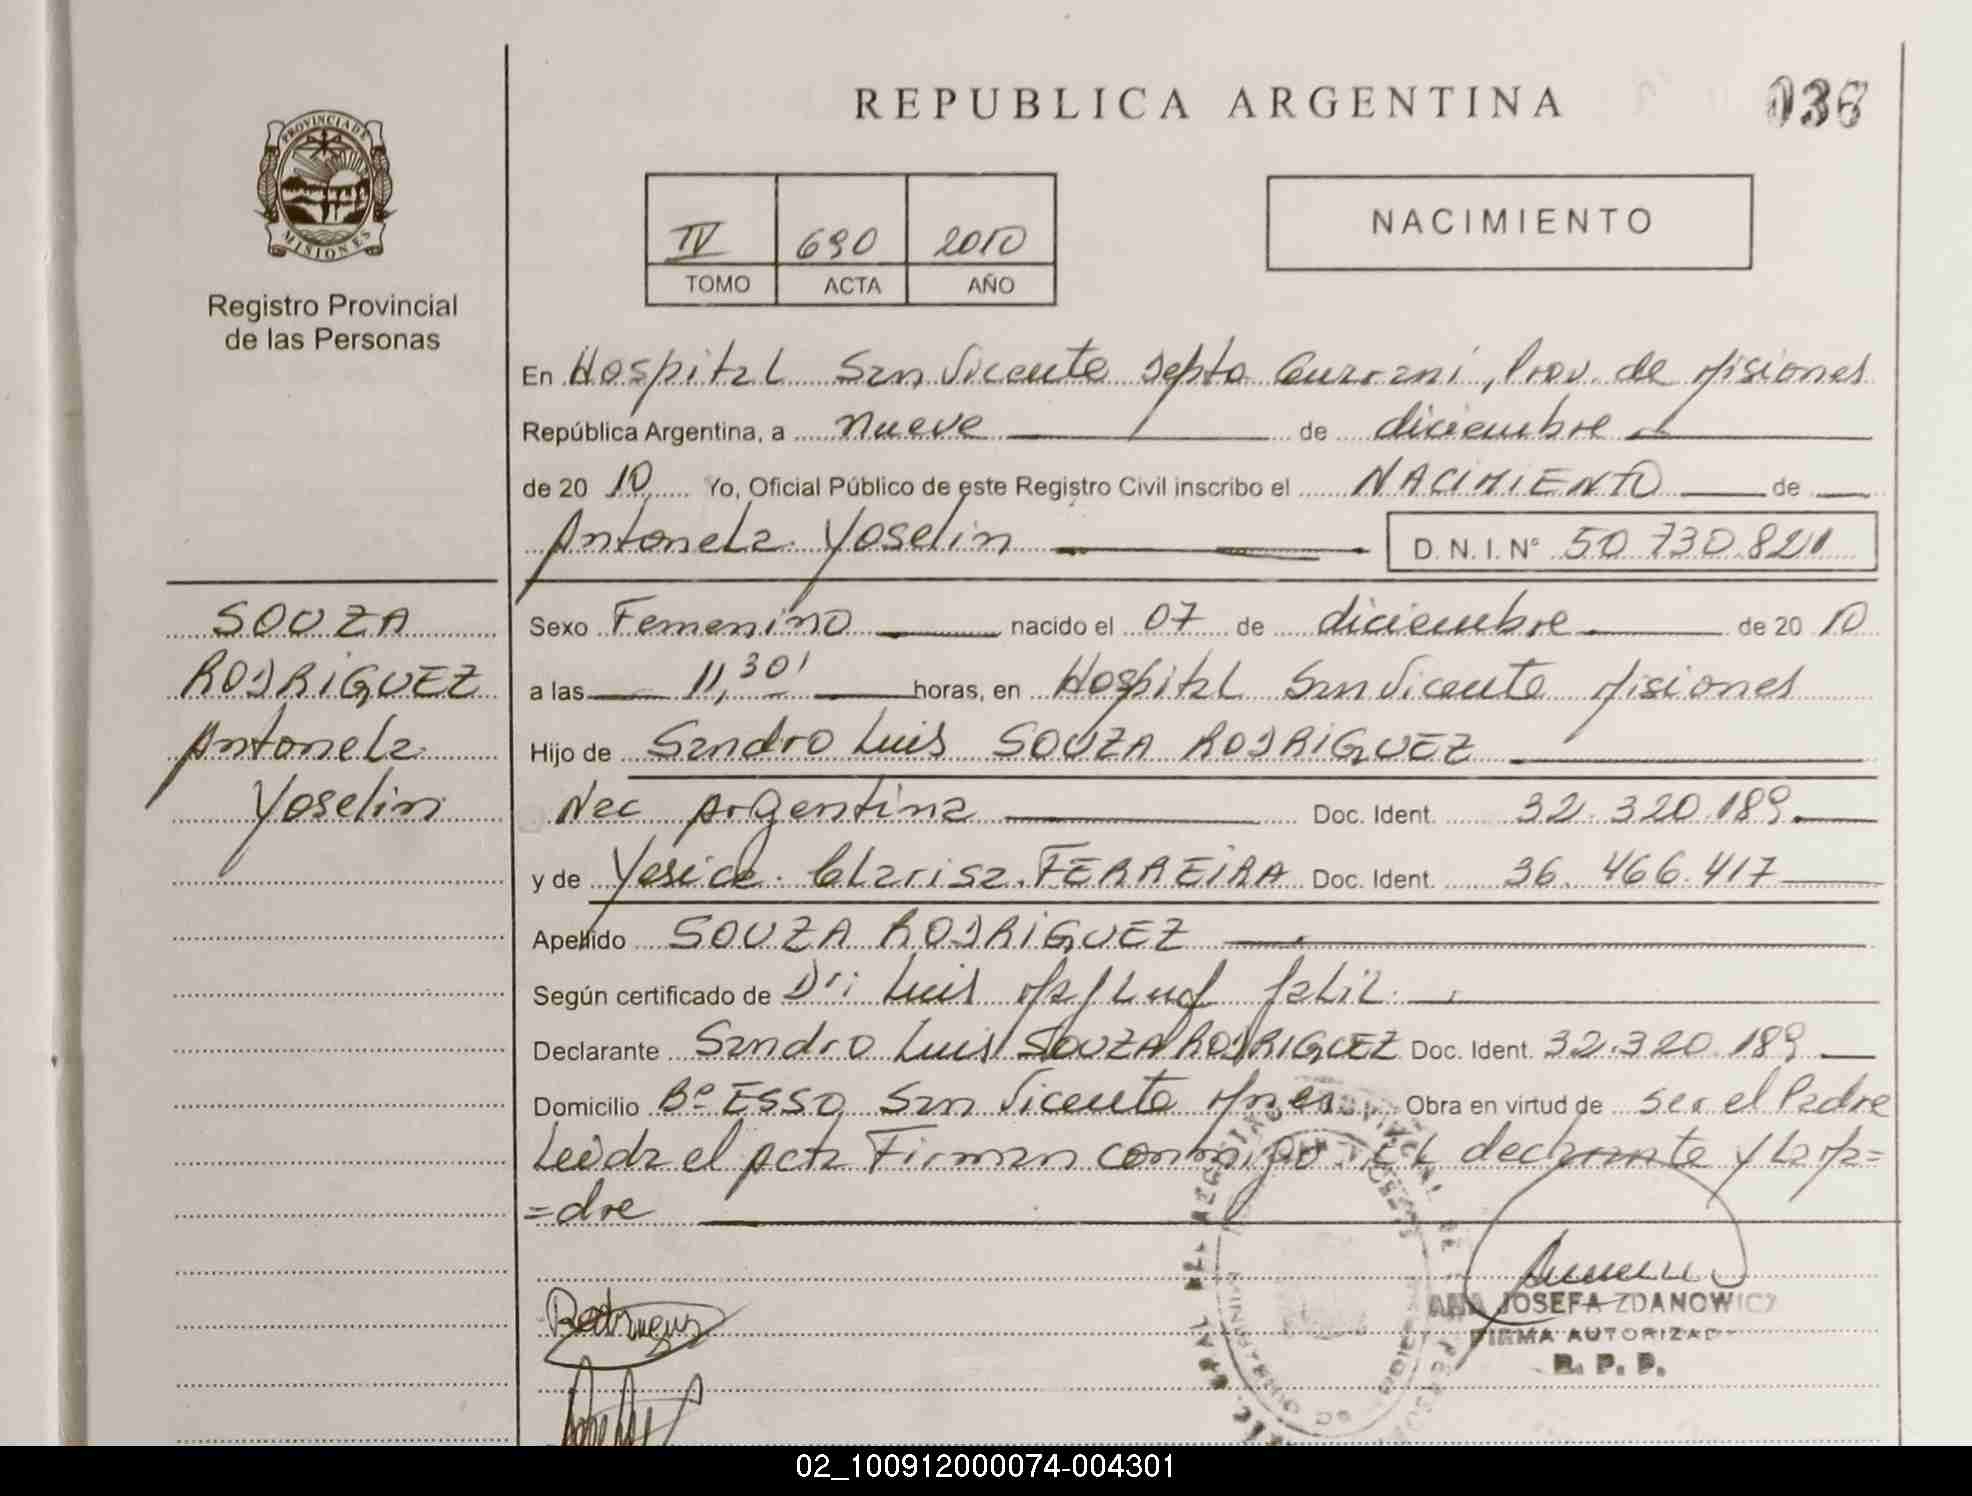 REPUBLICA ARGENTINA
036
PROVINCIA DE
MISIONES
Registro Provincial
de las Personas
IV 690 2010
TOMO ACTA AÑO
NACIMIENTO
En Hospital San Vicente Depto Guaraní, Prov. de Misiones
República Argentina, a nueve de diciembre
de 2010 Yo, Oficial Público de este Registro Civil inscribo el NACIMIENTO de
Antonela Yoselin D. N. I. N° 50 730.821
SOUZA
RODRIGUEZ
Antonela
Yoselin
Sexo Femenino nacido el 07 de diciembre de 2010
a las 11,30' horas, en Hospital San Vicente Misiones
Hijo de Sandro Luis SOUZA RODRIGUEZ
Nac Argentina Doc. Ident. 32.320.189
y de Yesica Clarisa FERREIRA Doc. Ident. 36.466.417
Apellido SOUZA RODRIGUEZ
Según certificado de Dr: Luis
Declarante Sandro Luis SOUZA RODRIGUEZ Doc. Ident. 32.320.189
Domicilio Bº ESSO San Vicente Mnes Obra en virtud de ser el Padre
Leida el Acta Firman conmigo El declarante y la Ma=
=dre
JOSEFA ZDANOWICZ
FIRMA AUTORIZAD
R. P. P.
Rodriguez
02_100912000074-004301